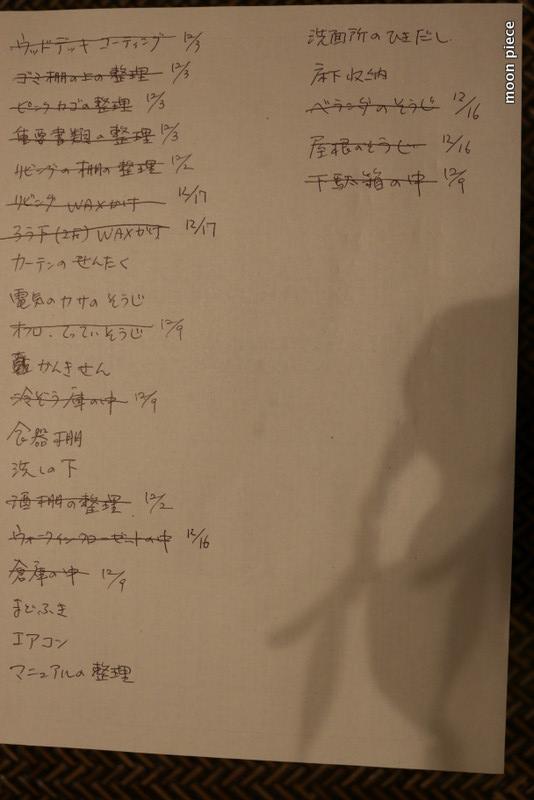 ウッドデッキ コーティング 12/3
ゴミ棚の上の整理 12/3
ピンクカゴの整理 12/3
重要書類の整理 12/3
リビングの棚の整理 12/2
リビング WAXがけ 12/17
ろう下(2F) WAXがけ 12/17
カーテンの せんたく
電気のカサの そうじ
オフロ、てっていそうじ 12/9
かんきせん
冷ぞう庫の中 12/9
食器棚
流しの下
酒棚の整理 12/2
ウォークインクローゼットの中 12/16
倉庫の中 12/9
まどふき
エアコン
マニュアルの整理
洗面所のひきだし
床下収納
ベランダのそうじ 12/16
屋根のそうじ 12/16
下駄箱の中 12/9
moon piece